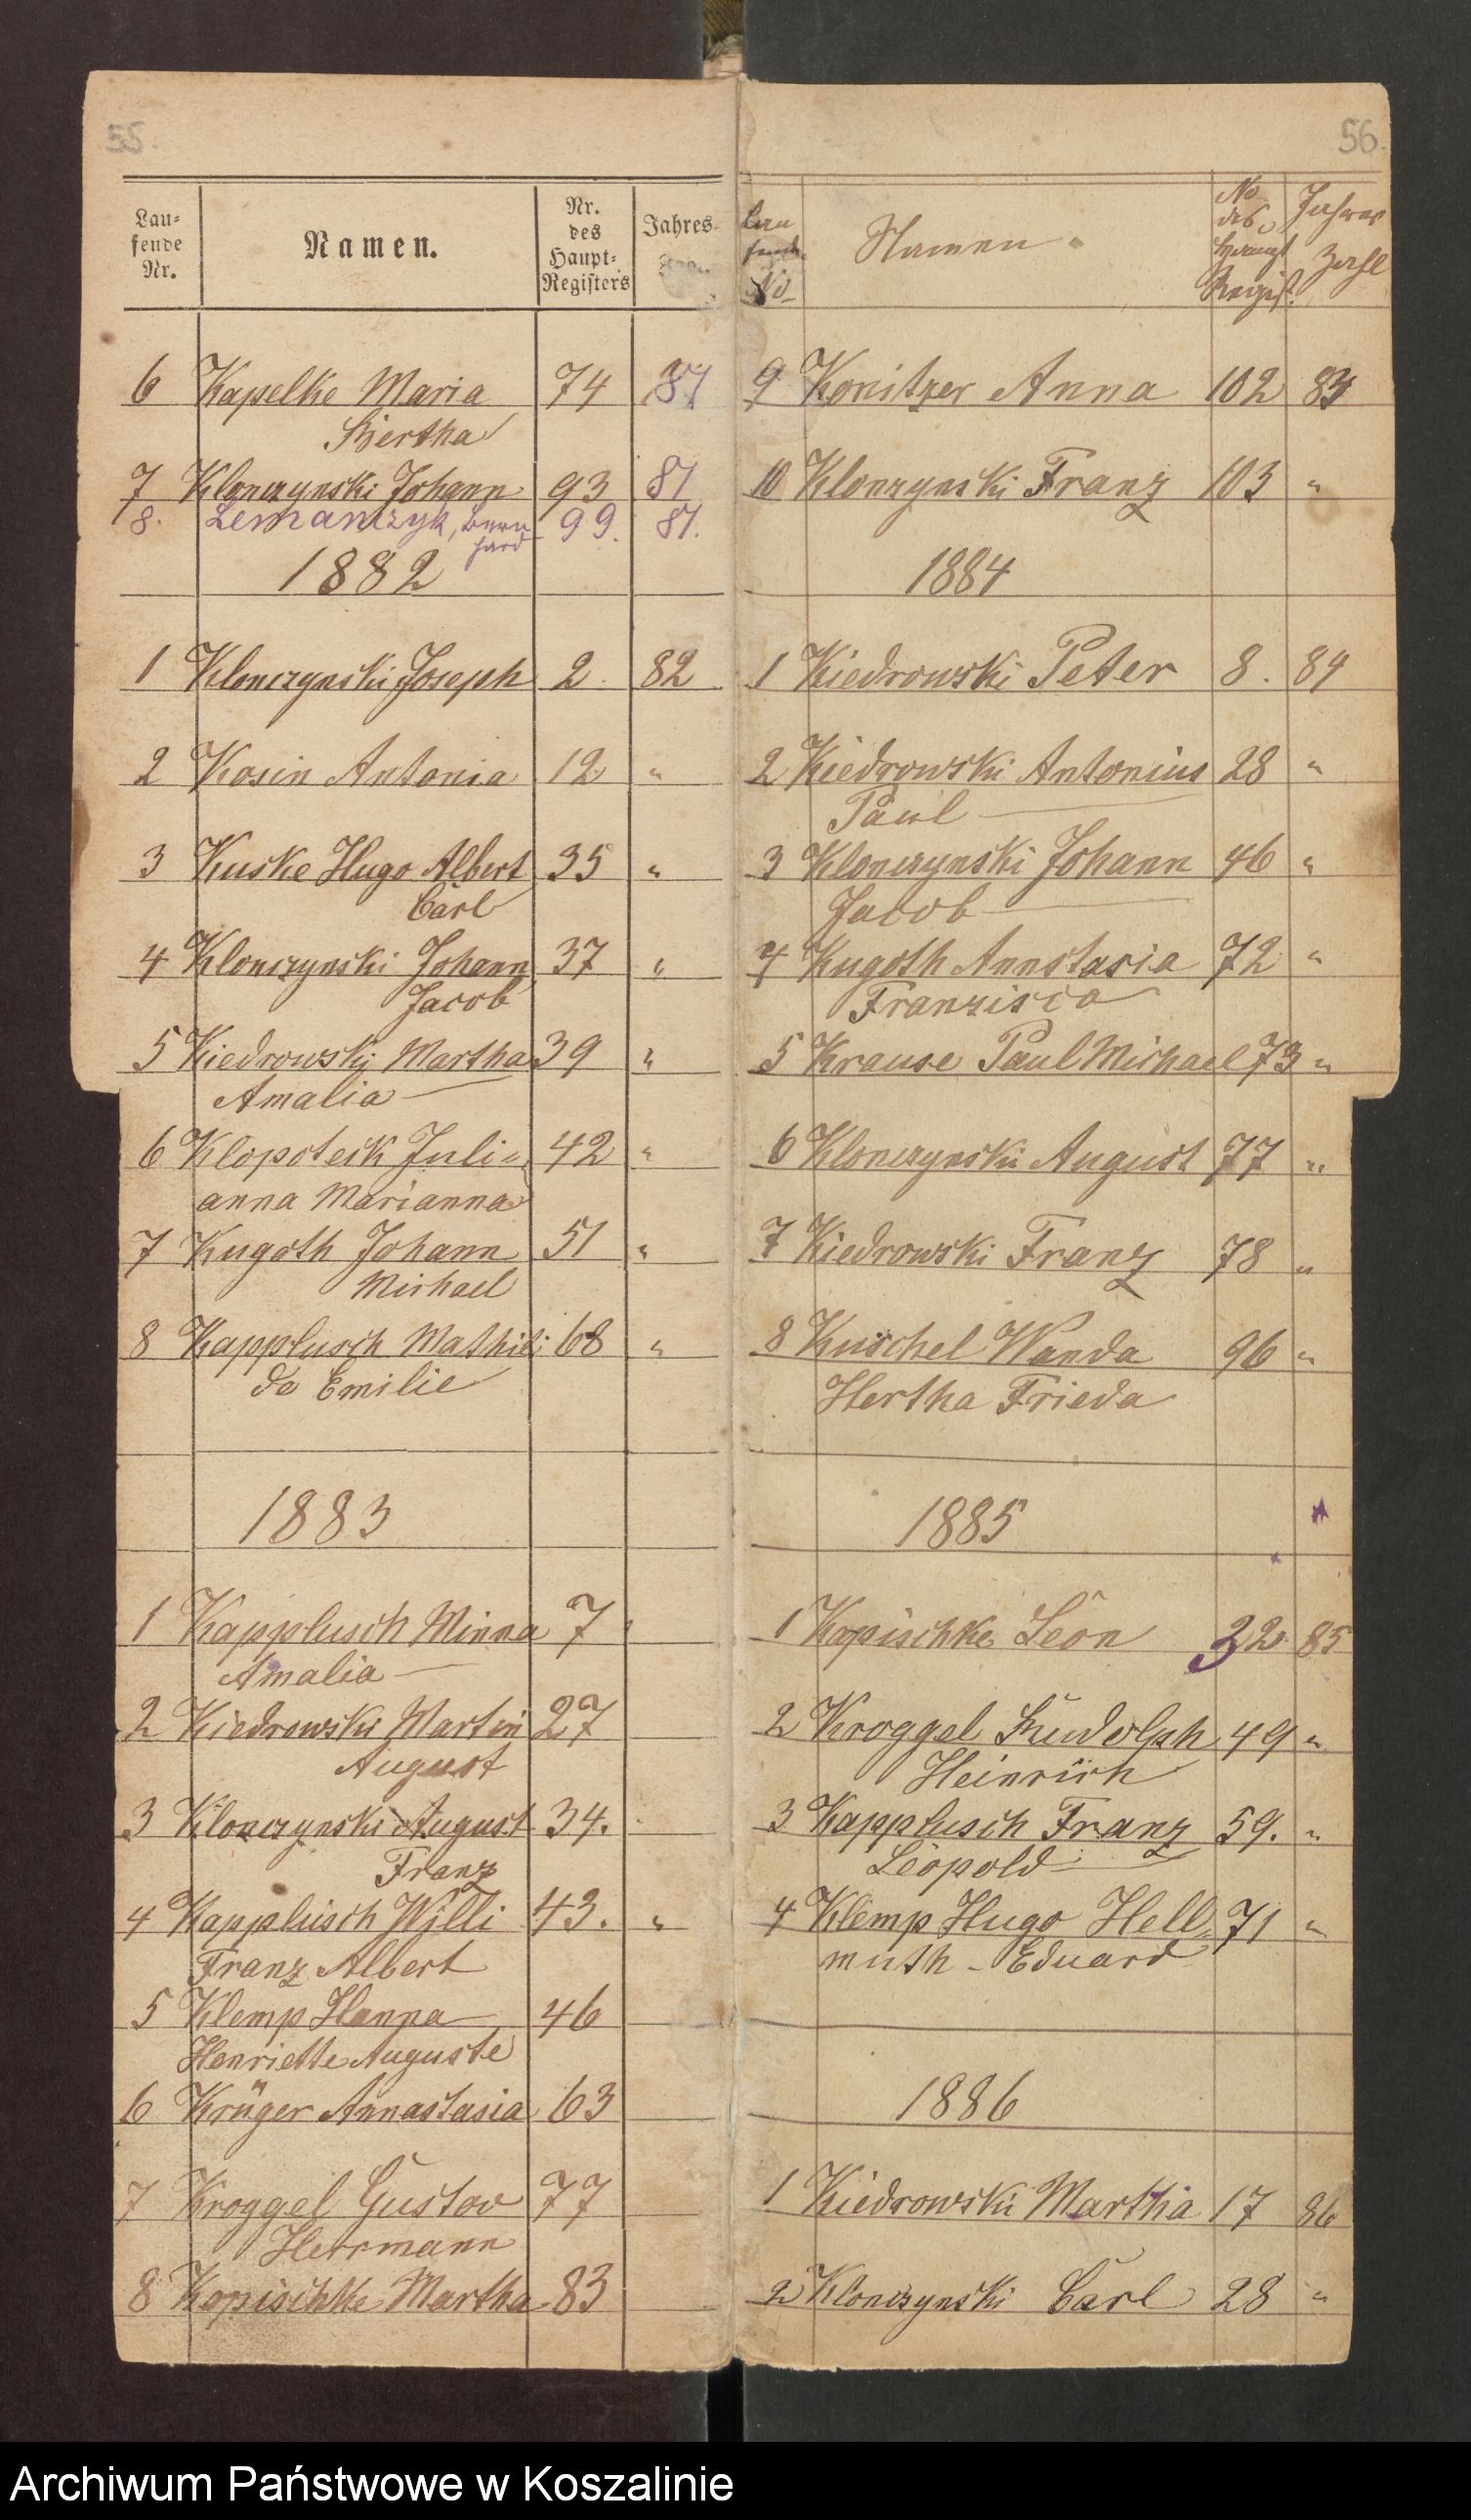 55.
Lau-
fende
Nr.
Namen.
Nr.
des
Haupt-
Registers
Jahres-
6 Kapelke Maria 74 87
Bertha
7 Klonczynski Johann 93 81
8. Lemanczyk, Bern 99. 81.
hard
1882
1 Klonczynski Joseph 2. 82
2 Kosin Antonia 12 "
3 Kuske Hugo Albert 35 "
Carl
4 Klonczynski Johann 37 "
Jacob
5 Kiedrowski Martha 39 "
Amalia
6 Klopoteck Juli- 42 "
anna Marianna
7 Kugoth Johann 51 "
Michael
8 Kapplusch Mathil- 68 "
da Emilie
1883
1 Kapplusch Minna 7 "
Amalia
2 Kiedrowski Martin 27
August
3 Klonczynski August 34.
Franz
4 Kapplusch Willi 43. "
Franz Albert
5 Klemp Hanna 46
Henriette Auguste
6 Krüger Annastasia 63
7 Kroggel Gustav 77
Herrmann
8 Kopischke Martha 83
56.
Lau
fende
No
Namen.
No
des
Haupt
Regist.
Jahres
Zahl
9 Konitzer Anna 102 83
10 Klonzynski Franz 103 "
1884
1 Kiedrowski Peter 8. 84
2 Kiedrowski Antonius 28 "
Paul
3 Klonczynski Johann 46 "
Jacob
4 Kugoth Annstasia 72 "
Franzisca
5 Krause Paul Michael 73 "
6 Klonczynski August 77 "
7 Kiedrowski Franz 78 "
8 Kuschel Wanda 96 "
Hertha Frieda
1885
1 Kopischke Leon 32 85
2 Kroggel Rudolph 49 "
Heinrich
3 Kapplusch Franz 59. "
Leopold
4 Klemp Hugo Hell- 71 "
muth - Eduard
1886
1 Kiedrowski Martha 17 86
2 Klonczynski Carl 28 "
Archiwum Państwowe w Koszalinie